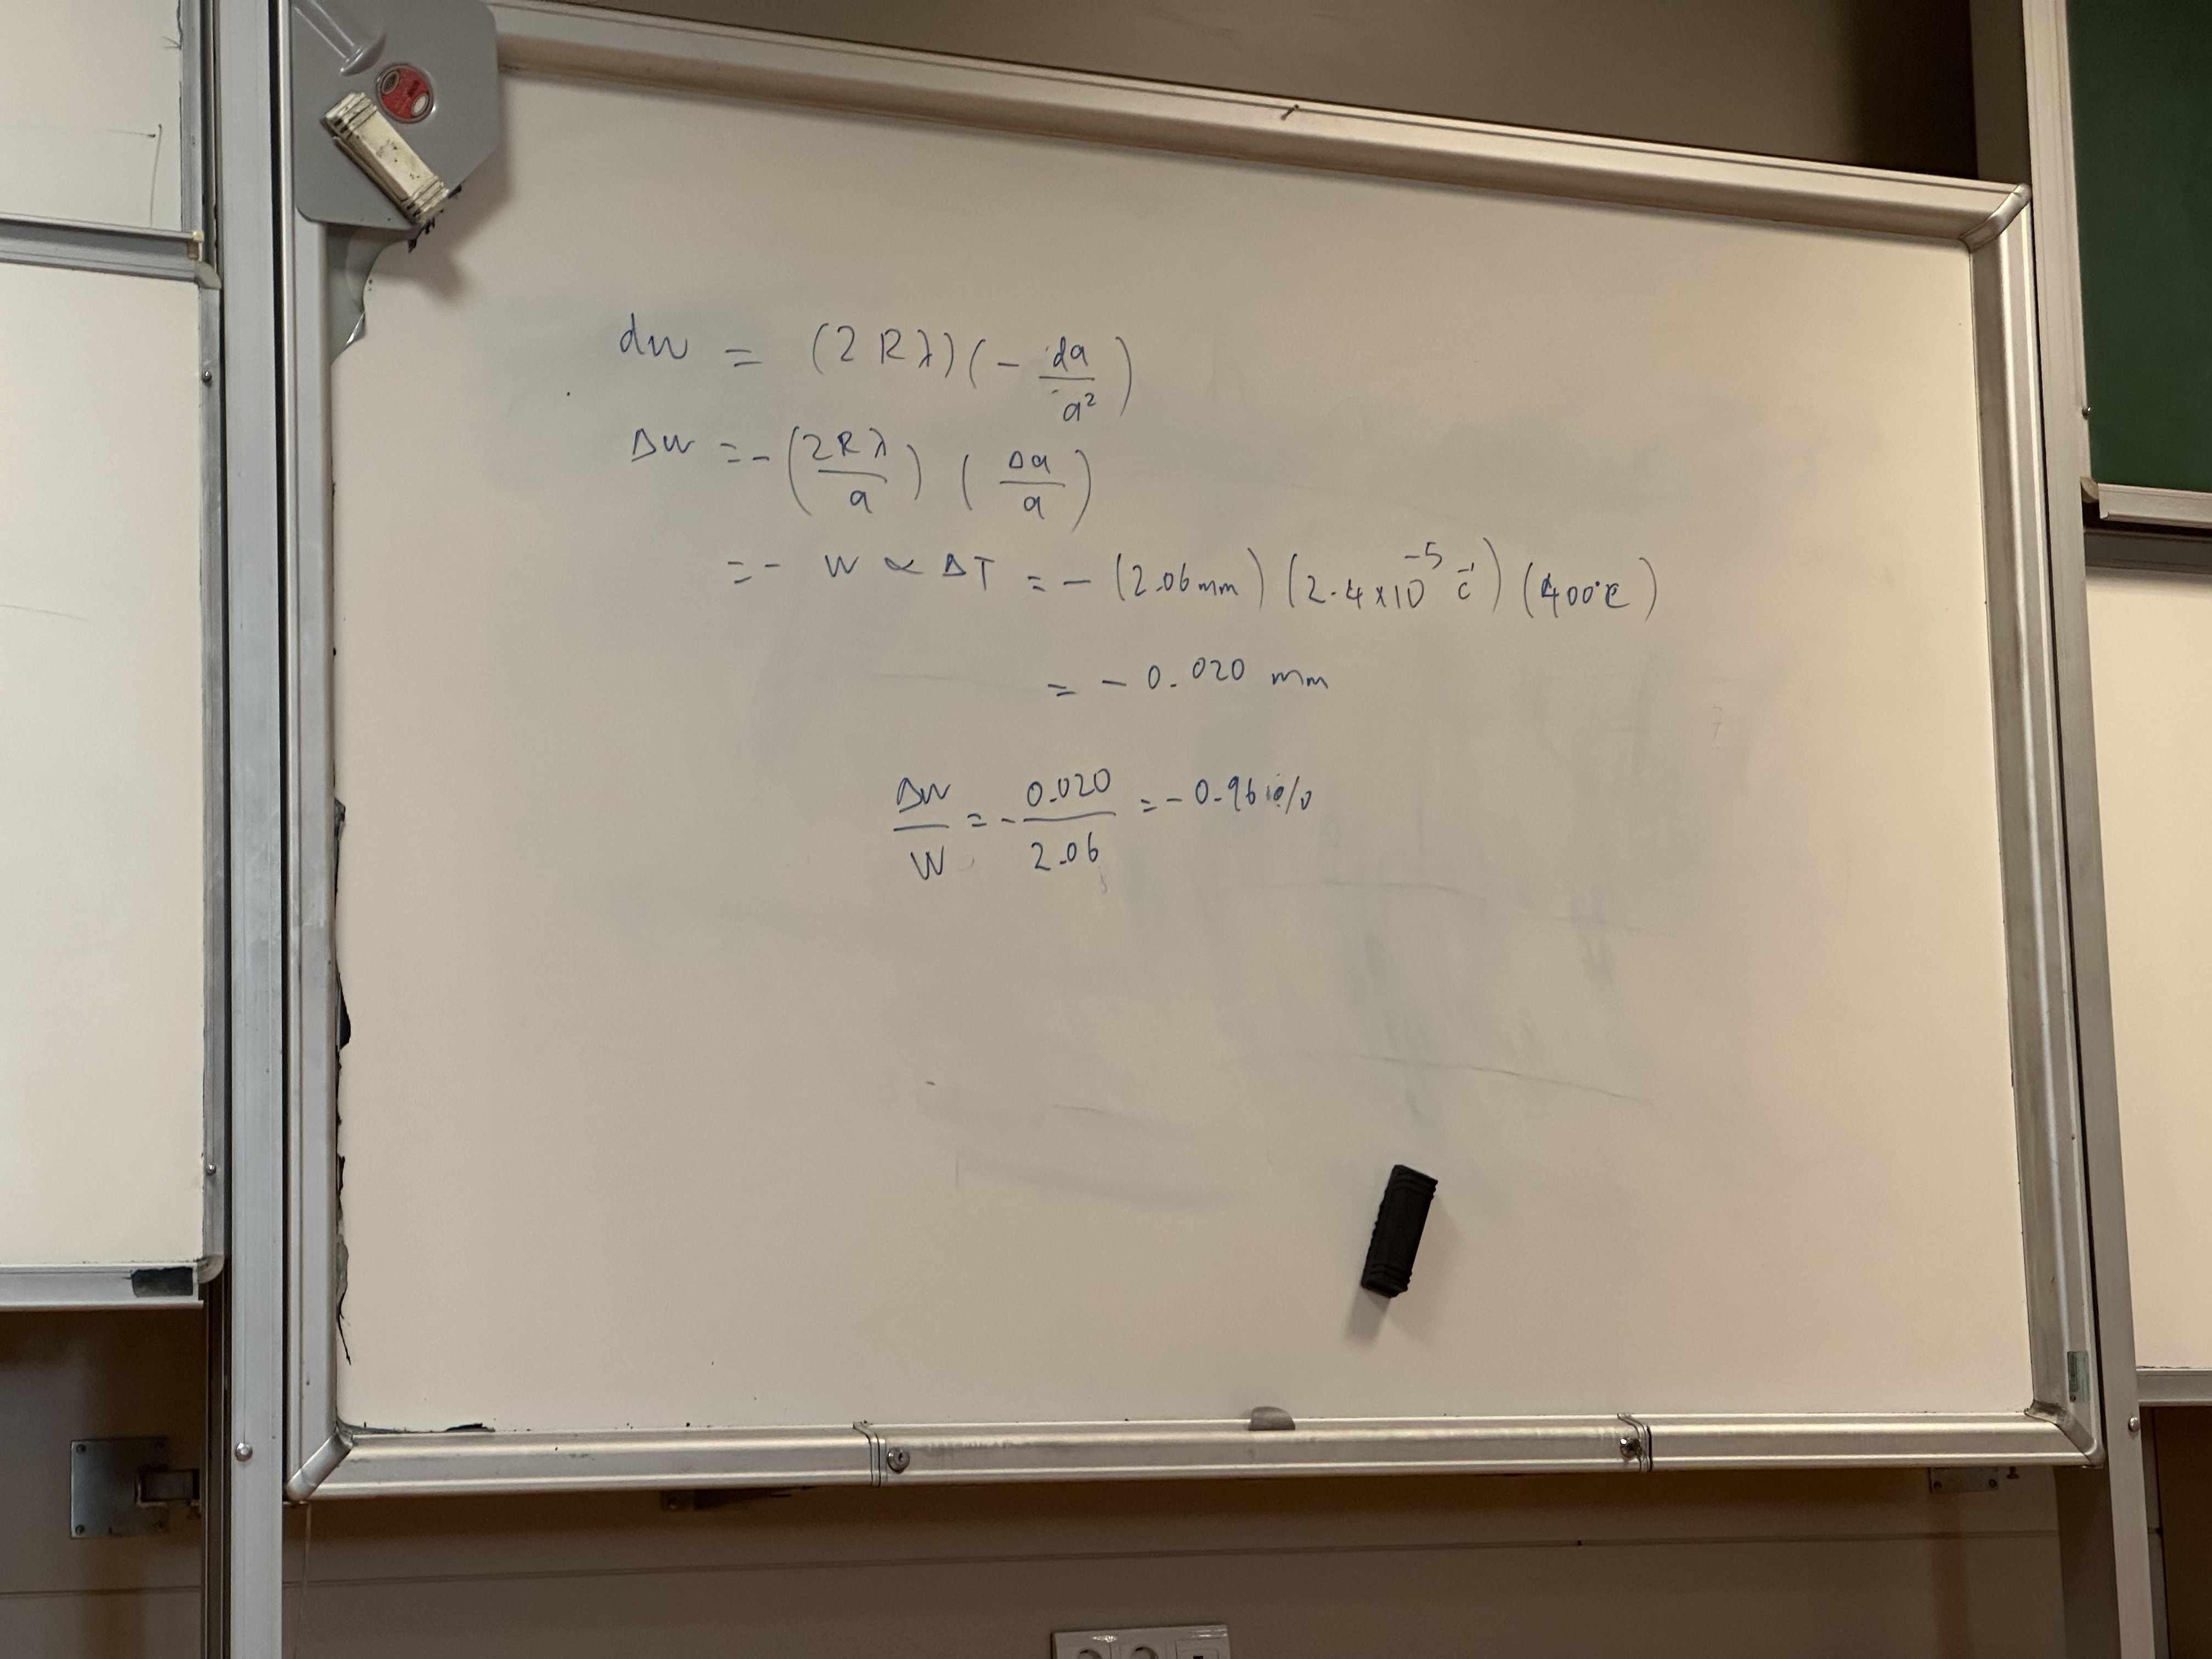 dw = (2Rλ)(- da/a²)
Δw = -(2Rλ/a)(Δa/a)
= - W α ΔT = -(2.06mm)(2.4×10⁻⁵ C⁻¹)(400°C)
= - 0.020 mm
Δw/W = - 0.020/2.06 = - 0.96 %